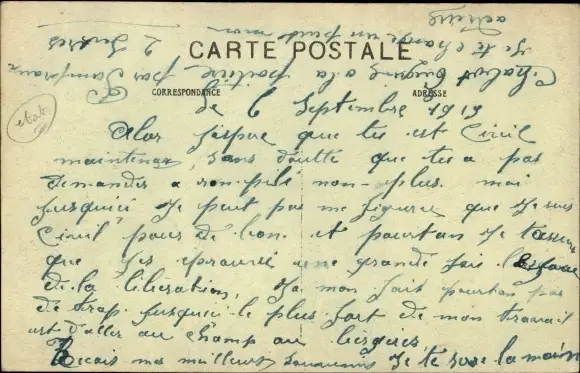 CARTE POSTALE
CORRESPONDANCE
ADRESSE
le 6 Septembre 1919
Alor j'espere que tu est Civil
maintenan, sans doutte que tu a pas
demander a rempilé non plus. moi
jusquici je peut pas me figurer que je suis
Civil pour de bon. et pourtan je t'assure
que j'ais eprouvé une grande joie
de la libération, Sa mon fait pourtan pas
de trop jusquici le plus fort de mon travail
est d'aller au champ au bergères,
Recois mes meilleurs souvenirs je te serre la main
Chabut Eugène a la poitière par
je te change un petit mon
adresse
2 Sèvres